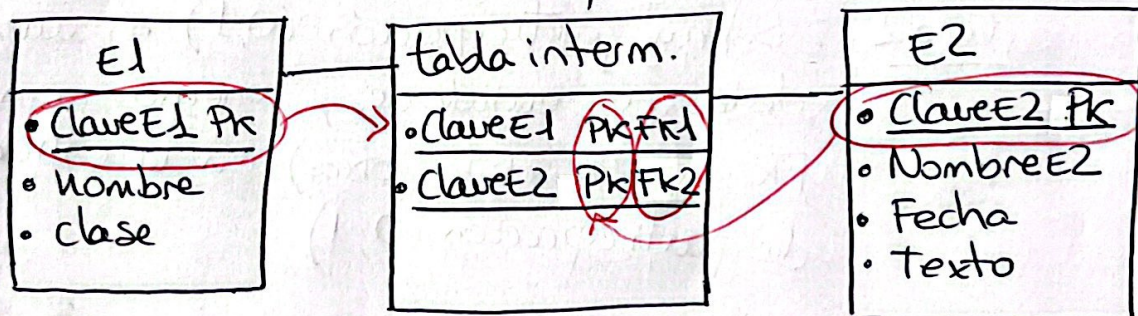 E1
• ClaveE1 PK
• nombre
• clase
tabla interm.
• ClaveE1 PK FK1
• ClaveE2 PK FK2
E2
• ClaveE2 PK
• NombreE2
• Fecha
• Texto